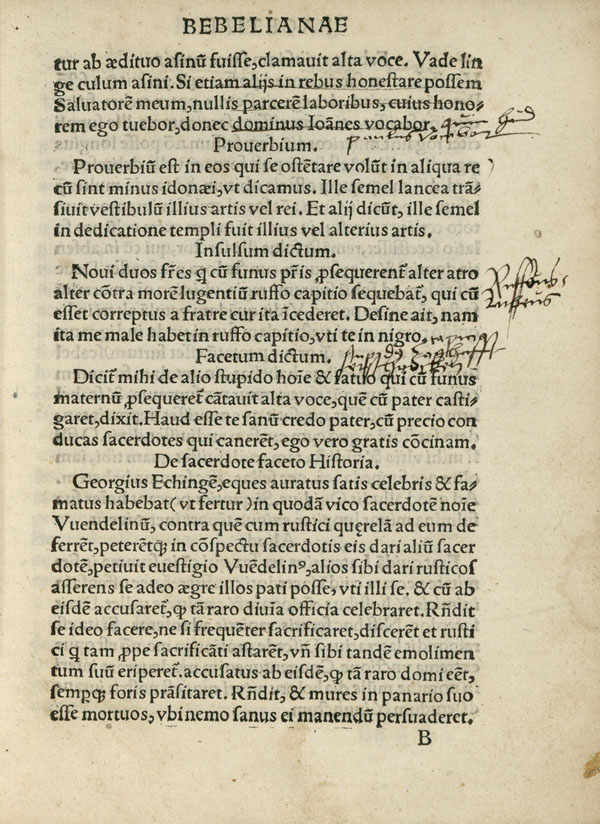 BEBELIANAE
tur ab ædituo asinũ fuisse, clamauit alta voce. Vade lin
ge culum asini. Si etiam alijs in rebus honestare possem
Saluatorẽ meum, nullis parcerẽ laboribus, cuius hono⸗
rem ego tuebor, donec dominus Ioãnes vocabor.
Prouerbium.
Prouerbiũ est in eos qui se ostẽtare volũt in aliqua re
cũ sint minus idonæi, vt dicamus. Ille semel lancea trã⸗
siuit vestibulũ illius artis vel rei. Et alij dicũt, ille semel
in dedicatione templi fuit illius vel alterius artis.
Insulsum dictum.
Noui duos fr̃es q cũ funus pr̃is, ꝓsequerent̃ alter atro
alter cõtra morẽ lugentiũ ruffo capitio sequebat̃, qui cũ
esset correptus a fratre cur ita ĩcederet. Desine ait, nam
ita me male habet in ruffo capitio, vti te in nigro.
Facetum dictum.
Dicit̃ mihi de alio stupido hoĩe & fatuo qui cũ funus
maternũ ꝓsequeret̃ cãtauit alta voce, quẽ cũ pater casti⸗
garet, dixit. Haud esse te sanũ credo pater, cũ precio con
ducas sacerdotes qui canerẽt, ego vero gratis cõcinam.
De sacerdote faceto Historia.
Georgius Echingẽ, eques auratus satis celebris & fa⸗
matus habebat (vt fertur) in quodã vico sacerdotẽ noĩe
Vuendelinũ, contra quẽ cum rustici querelã ad eum de
ferrẽt, peterẽtqꝫ in cõspectu sacerdotis eis dari aliũ sacer
dotẽ, petiuit euestigio Vuẽdelinꝰ, alios sibi dari rusticos
asserens se adeo ægre illos pati posse, vti illi se. & cũ ab
eisdẽ accusaret̃, ꝙ tã raro diuĩa officia celebraret. Rñdit
se ideo facere, ne si frequẽter sacrificaret, discerẽt et rusti
ci q tam ꝓpe sacrificãti astarẽt, vñ sibi tandẽ emolimen
tum suũ eriperet̃. accusatus ab eisdẽ, ꝙ tã raro domi eẽt,
semꝑqꝫ foris prãsitaret. Rñdit, & mures in panario suo
esse mortuos, vbi nemo sanus ei manendũ persuaderet.
B